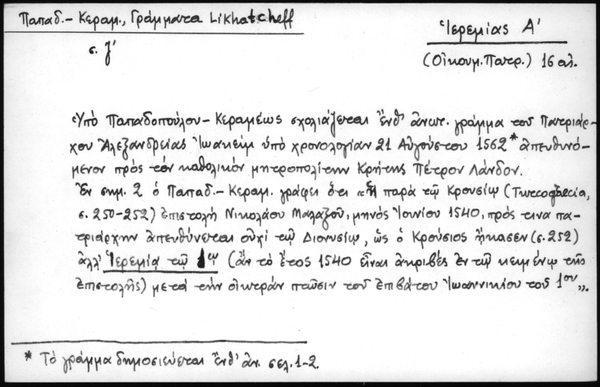 Παπαδ.-Κεραμ., Γράμματα Likhatcheff
Ἱερεμίας Α'
σ. ζ'
(Οἰκουμ. Πατρ.) 16 αι.
Ὑπό Παπαδοπούλου-Κεραμέως σχολιάζεται ἔνθ' ἀνωτ. γράμμα του Πατριάρ-
χου Ἀλεξανδρείας Ἰωακείμ ὑπό χρονολογίαν 21 Αὐγούστου 1562* ἀπευθυνό-
μενον πρὸς τὸν καθολικὸν μητροπολίτην Κρήτης Πέτρον Λάνδον.
Ἐν σημ. 2 ὁ Παπαδ.-Κεραμ. γράφει ὅτι «ἡ παρὰ τῷ Κρουσίῳ (Turcograecia,
σ. 250-252) ἐπιστολή Νικολάου Μαλαξοῦ, μηνὸς Ἰουνίου 1540, πρὸς τινα πα-
τριάρχην ἀπευθύνεται οὐχί τῷ Διονυσίῳ, ὡς ὁ Κρούσιος ᾔκασεν (σ. 252)
ἀλλ' Ἱερεμίᾳ τῷ 1ῳ (ἂν τὸ ἔτος 1540 εἶναι ἀκριβές ἐν τῷ κειμένῳ τῆς
ἐπιστολῆς) μετά την οἰκτράν πτῶσιν τοῦ ἐπιβάτου Ἰωαννικίου τοῦ 1ου».
* Τὸ γράμμα δημοσιεύεται ἔνθ' ἀν. σελ. 1-2